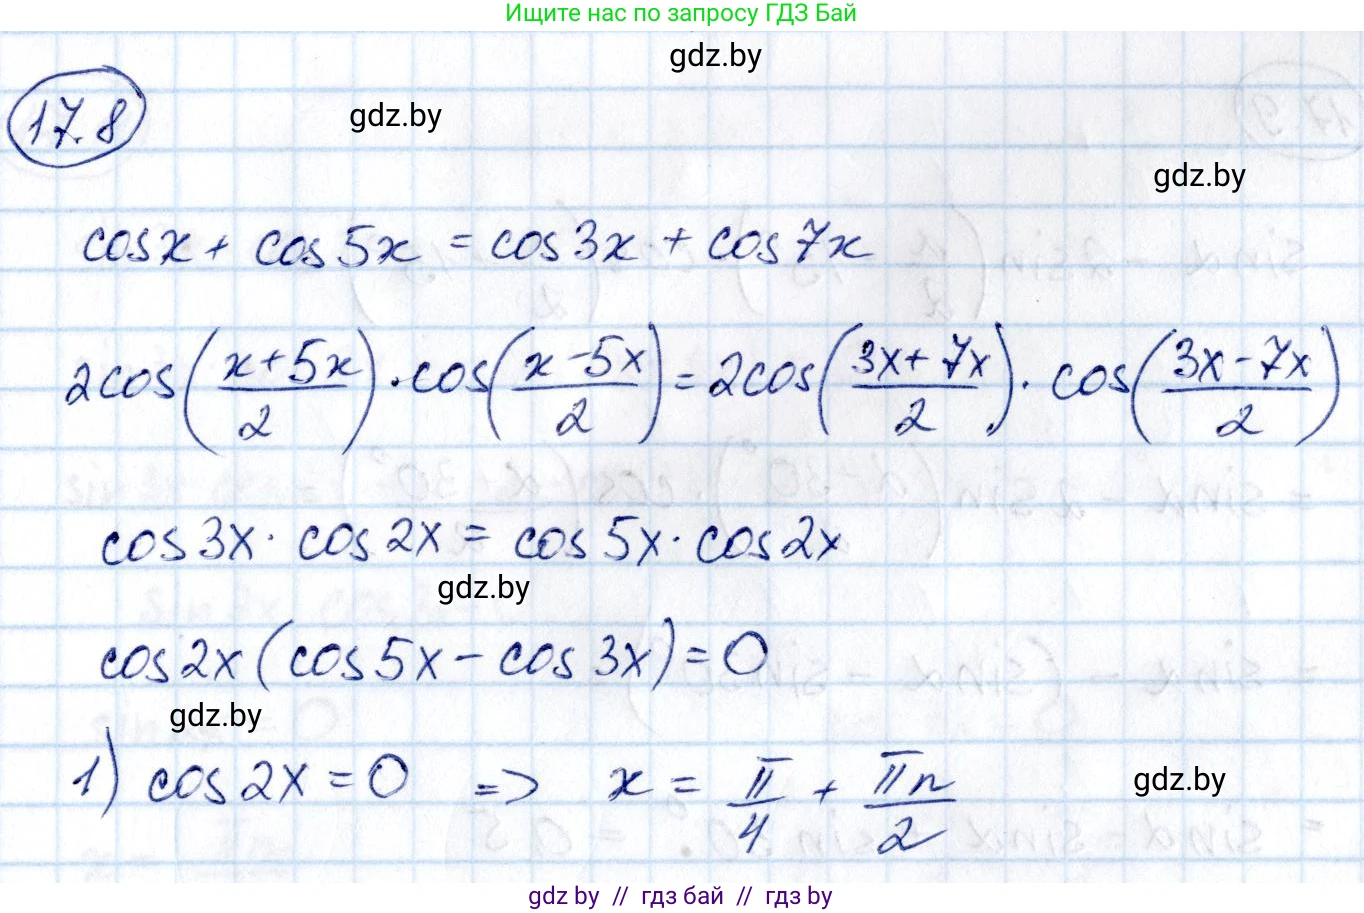 Ищите нас по запросу ГДЗ Бай
gdz.by
17.8
gdz.by
gdz.by
cosx + cos5x = cos3x + cos7x
2cos((x+5x)/2) · cos((x-5x)/2) = 2cos((3x+7x)/2) · cos((3x-7x)/2)
cos3x · cos2x = cos5x · cos2x
gdz.by
cos2x(cos5x - cos3x) = 0
gdz.by
1) cos2x = 0 => x = π/4 + πn/2
gdz.by
gdz by // гдз бай // гдз by